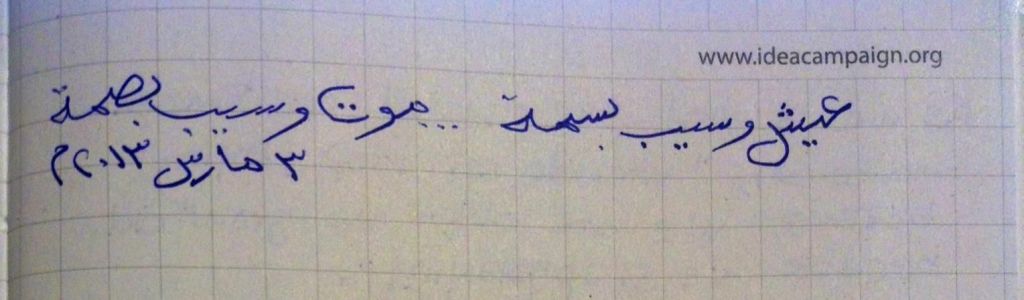 www.ideacampaign.org
عيش وسيب بسمة ... موت وسيب بصمة
٣ مارس ٢٠١٣ م